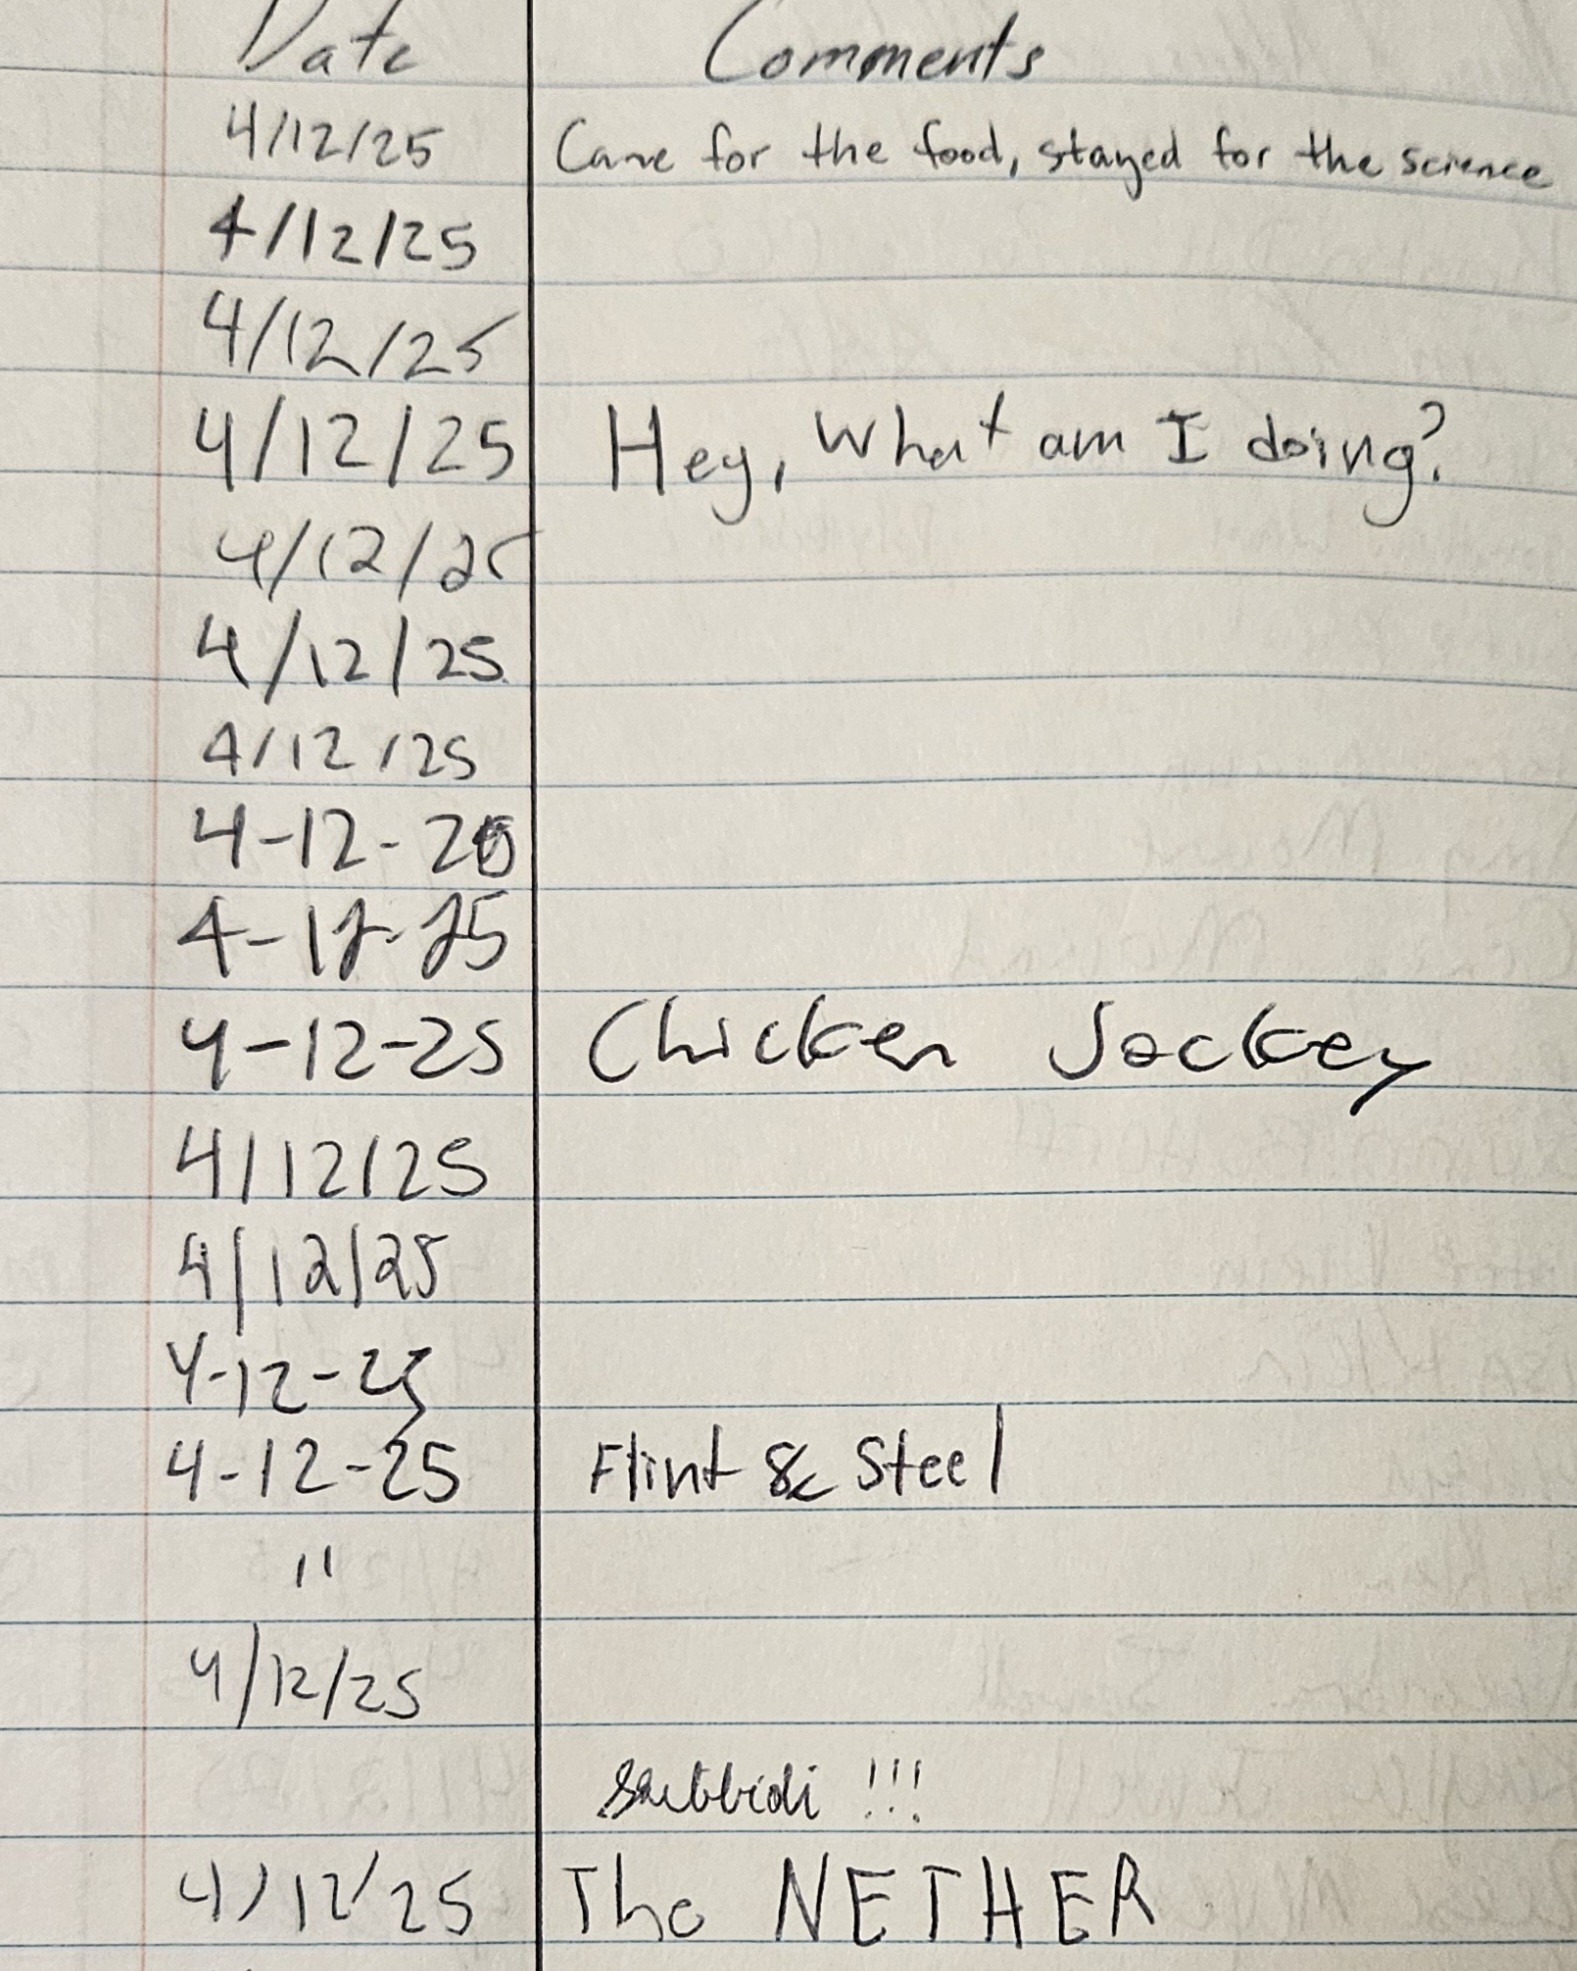 Date Comments
4/12/25 Came for the food, stayed for the science
4/12/25
4/12/25
4/12/25 Hey, What am I doing?
4/12/25
4/12/25
4/12/25
4-12-25
4-12-25
4-12-25 Chicken Jockey
4/12/25
4/12/25
4-12-25
4-12-25 Flint & Steel
"
4/12/25
!!!
4/12/25 The NETHER